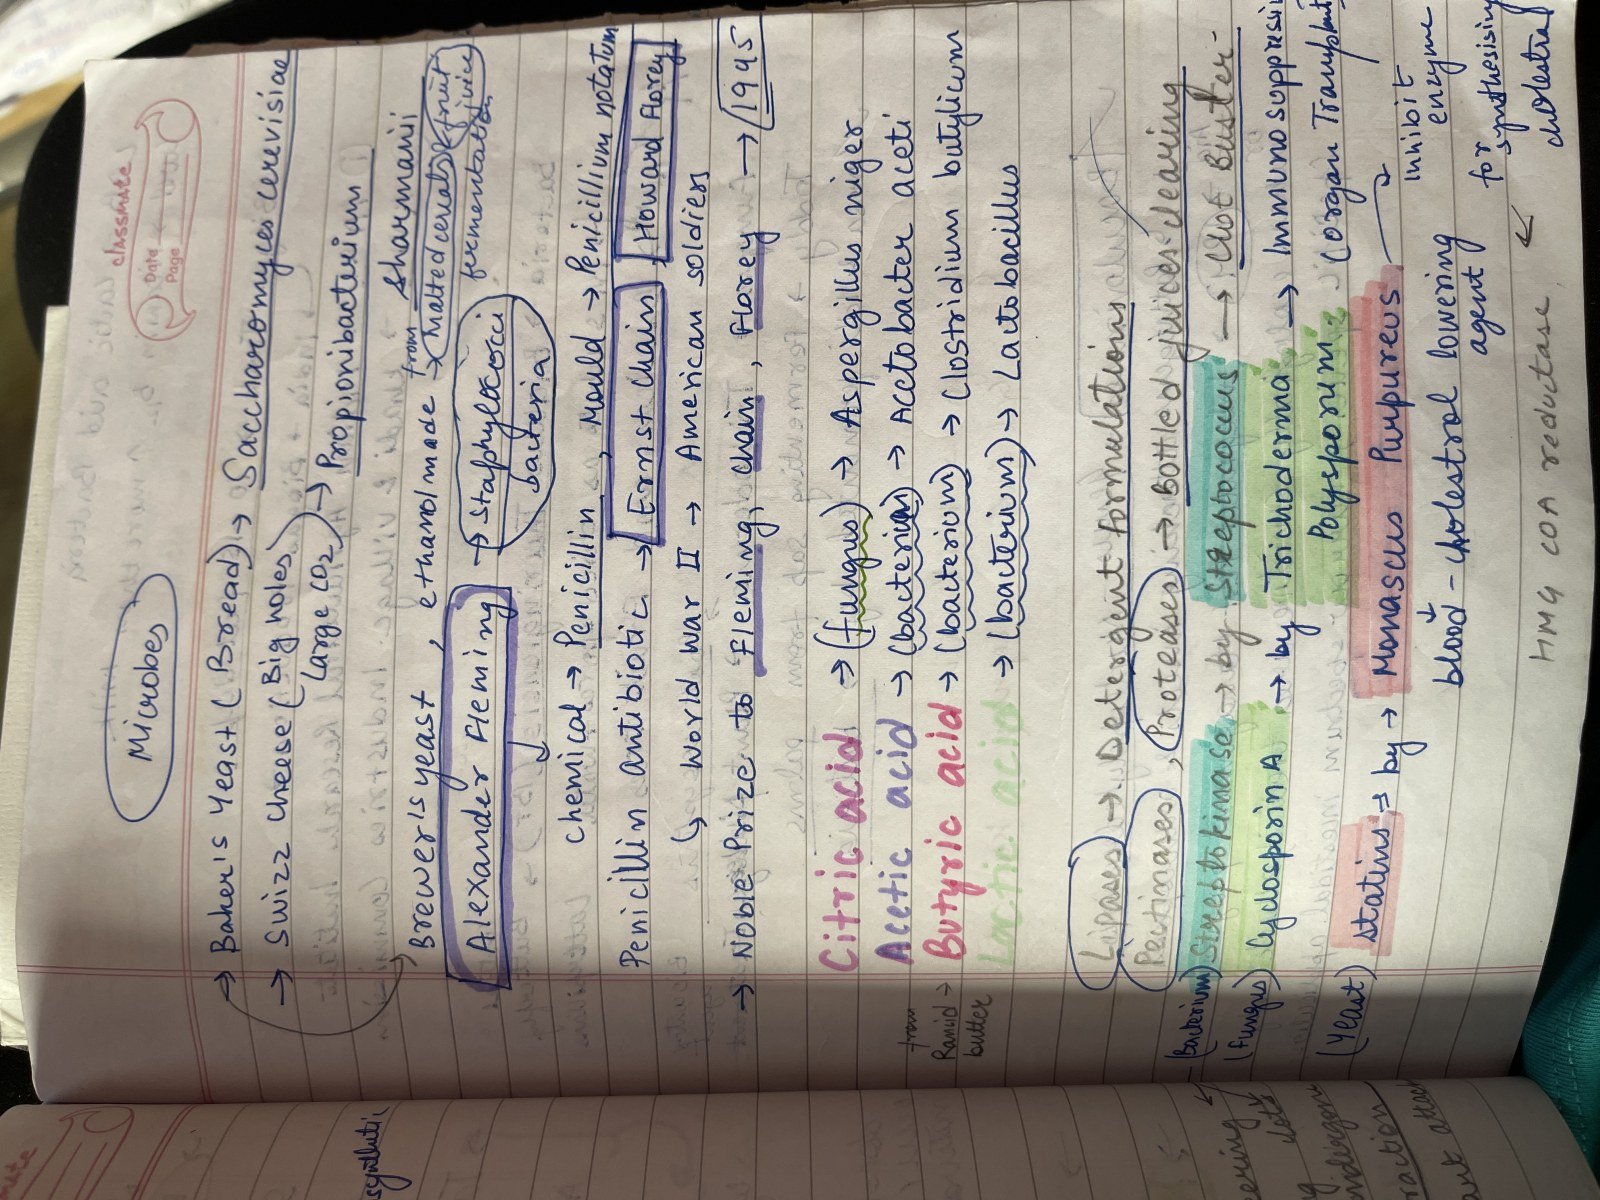 classmate
Date
Page
Microbes
→ Baker's yeast (Bread) → Saccharomyces cerevisiae
→ Swizz cheese (Big holes) → Propionibacterium
(large CO2) sharmanii
Brewer's yeast, ethanol made from → malted cereals & fruit juice
fermentation
Alexander Fleming → Staphylococci
bateria
chemical → Penicillin, Mould → Penicillium notatum
Penicillin antibiotic → Ernst chain, Howard Florey
↳ World war II → American soldiers
→ Noble Prize to Fleming, chain, Florey → 1945
Citric acid → (fungus) → Aspergillus niger
Acetic acid → (baterium) → Acctobacter aceti
from Rancid butter → Butyric acid → (baterium) → Clostridium butylicum
Lactic acid → (bacterium) → Lactobacillus
Lipases → Detergent formulations
Pectinases, Proteases → Bottled juices clearing
(Bacterium) Streptokinase → by Streptococcus → Clot Buster -
(fungus) Cyclosporin A → by Trichoderma → Immunosuppressi
Polysporum (organ Transplant
(Yeast) statins → by → Monascus Purpureus → inhibit
enzyme
blood - cholestrol lowering for
agent synthesising
cholestral
HMG COA reductase
synthetic
eening
lots
undergone
raction